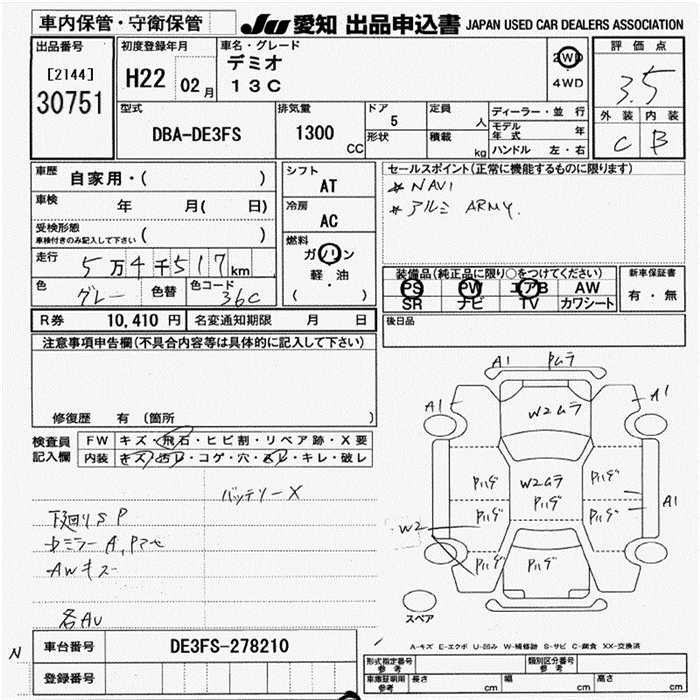 車内保管・守衛保管
JU 愛知 出品申込書 JAPAN USED CAR DEALERS ASSOCIATION
出品番号
[2144]
30751
初度登録年月
H22 02月
車名・グレード
デミオ
13C
2WD
4WD
評価点
3.5
外装 内装
C B
型式
DBA-DE3FS
排気量
1300 CC
ドア
5
形状
定員
人
積載
kg
ディーラー・並行
モデル年式 年
ハンドル 左・右
車歴
自家用・( )
車検
年 月( 日)
受検形態
車検付きのみ記入して下さい ( )
走行
5万4千517km
色
グレー
色替
色コード
36C
シフト
AT
冷房
AC
燃料
ガソリン
軽・油
( )
セールスポイント(正常に機能するものに限ります)
* NAVI
* アルミ ARMY.
装備品(純正品に限り○をつけてください)
PS PW エアB AW
SR ナビ TV カワシート
新車保証書
有・無
R券 10,410円 名変通知期限 月 日
後日品
注意事項申告欄(不具合内容等は具体的に記入して下さい)
修復歴 有(箇所 )
検査員記入欄
FW キズ・飛石・ヒビ割・リペア跡・X要
内装 キズ・汚レ・コゲ・穴・スレ・キレ・破レ
バッテリーX
下回りS P
AWキズ
各AU
A1 Pムラ
A1 A1
W2ムラ
Pハゲ W2ムラ Pハゲ
Pハゲ
A1
Pハゲ Pハゲ
W2
Pハゲ Pハゲ
スペア
N
車台番号 DE3FS-278210
登録番号
A-キズ E-エクボ U-凹み W-補修跡 S-サビ C-腐食 XX-交換済
形式指定番号
参考
類別区分番号
参考
車庫証明用
参考
長さ cm 幅 cm 高さ cm